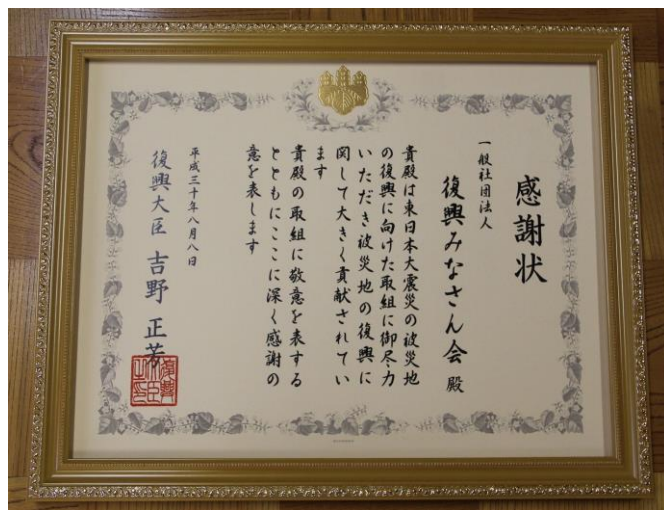 感謝状
一般社団法人
復興みなさん会 殿
貴殿は東日本大震災の被災地
の復興に向けた取組に御尽力
いただき被災地の復興に
関して大きく貢献されてい
ます
貴殿の取組に敬意を表する
とともにここに深く感謝の
意を表します
平成三十年八月八日
復興大臣 吉野正芳